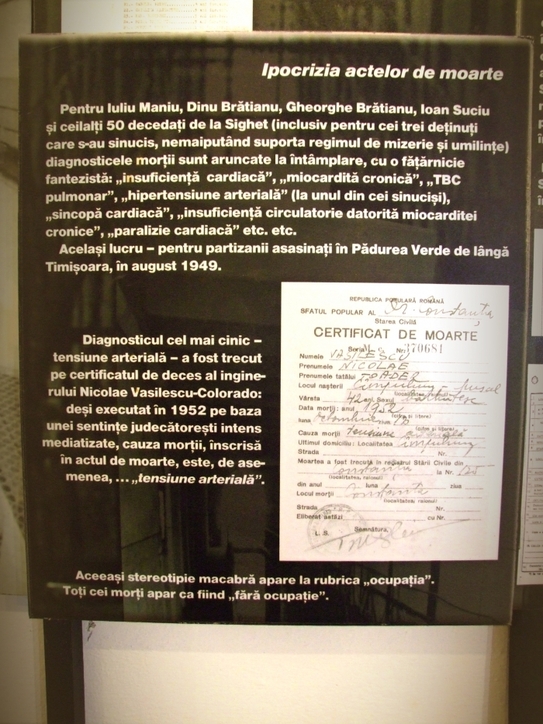 Ipocrizia actelor de moarte
Pentru Iuliu Maniu, Dinu Brătianu, Gheorghe Brătianu, Ioan Suciu
și ceilalți 50 decedați de la Sighet (inclusiv pentru cei trei deținuți
care s-au sinucis, nemaiputând suporta regimul de mizerie și umilințe)
diagnosticele morții sunt aruncate la întâmplare, cu o fățărnicie
fantezistă: „insuficiență cardiacă”, „miocardită cronică”, „TBC
pulmonar”, „hipertensiune arterială” (la unul din cei sinuciși),
„sincopă cardiacă”, „insuficiență circulatorie datorită miocarditei
cronice”, „paralizie cardiacă” etc. etc.
Același lucru – pentru partizanii asasinați în Pădurea Verde de lângă
Timișoara, în august 1949.
Diagnosticul cel mai cinic –
tensiune arterială – a fost trecut
pe certificatul de deces al ingine-
rului Nicolae Vasilescu-Colorado:
deși executat în 1952 pe baza
unei sentințe judecătorești intens
mediatizate, cauza morții, înscrisă
în actul de moarte, este, de ase-
menea, ...„tensiune arterială”.
REPUBLICA POPULARĂ ROMÂNĂ
SFATUL POPULAR AL Constanța
Starea Civilă
CERTIFICAT DE MOARTE
Seria Nr. 370681
Numele VASILESCU
Prenumele NICOLAE
Prenumele tatălui TOADER
Locul nașterii
(localitatea, raionul)
Vârsta 42 ani Sexul
Data morții: anul 1952
luna
Cauza morții tensiune
Ultimul domiciliu: Localitatea
Strada Nr.
Moartea a fost trecută în registrul Stării Civile din
Constanța la Nr.
(localitatea, raionul)
din anul luna ziua
Locul morții Constanța
(localitatea, raionul)
Strada Nr.
Eliberat astăzi cu Nr.
L. S. Semnătura,
Aceeași stereotipie macabră apare la rubrica „ocupația”.
Toți cei morți apar ca fiind „fără ocupație”.